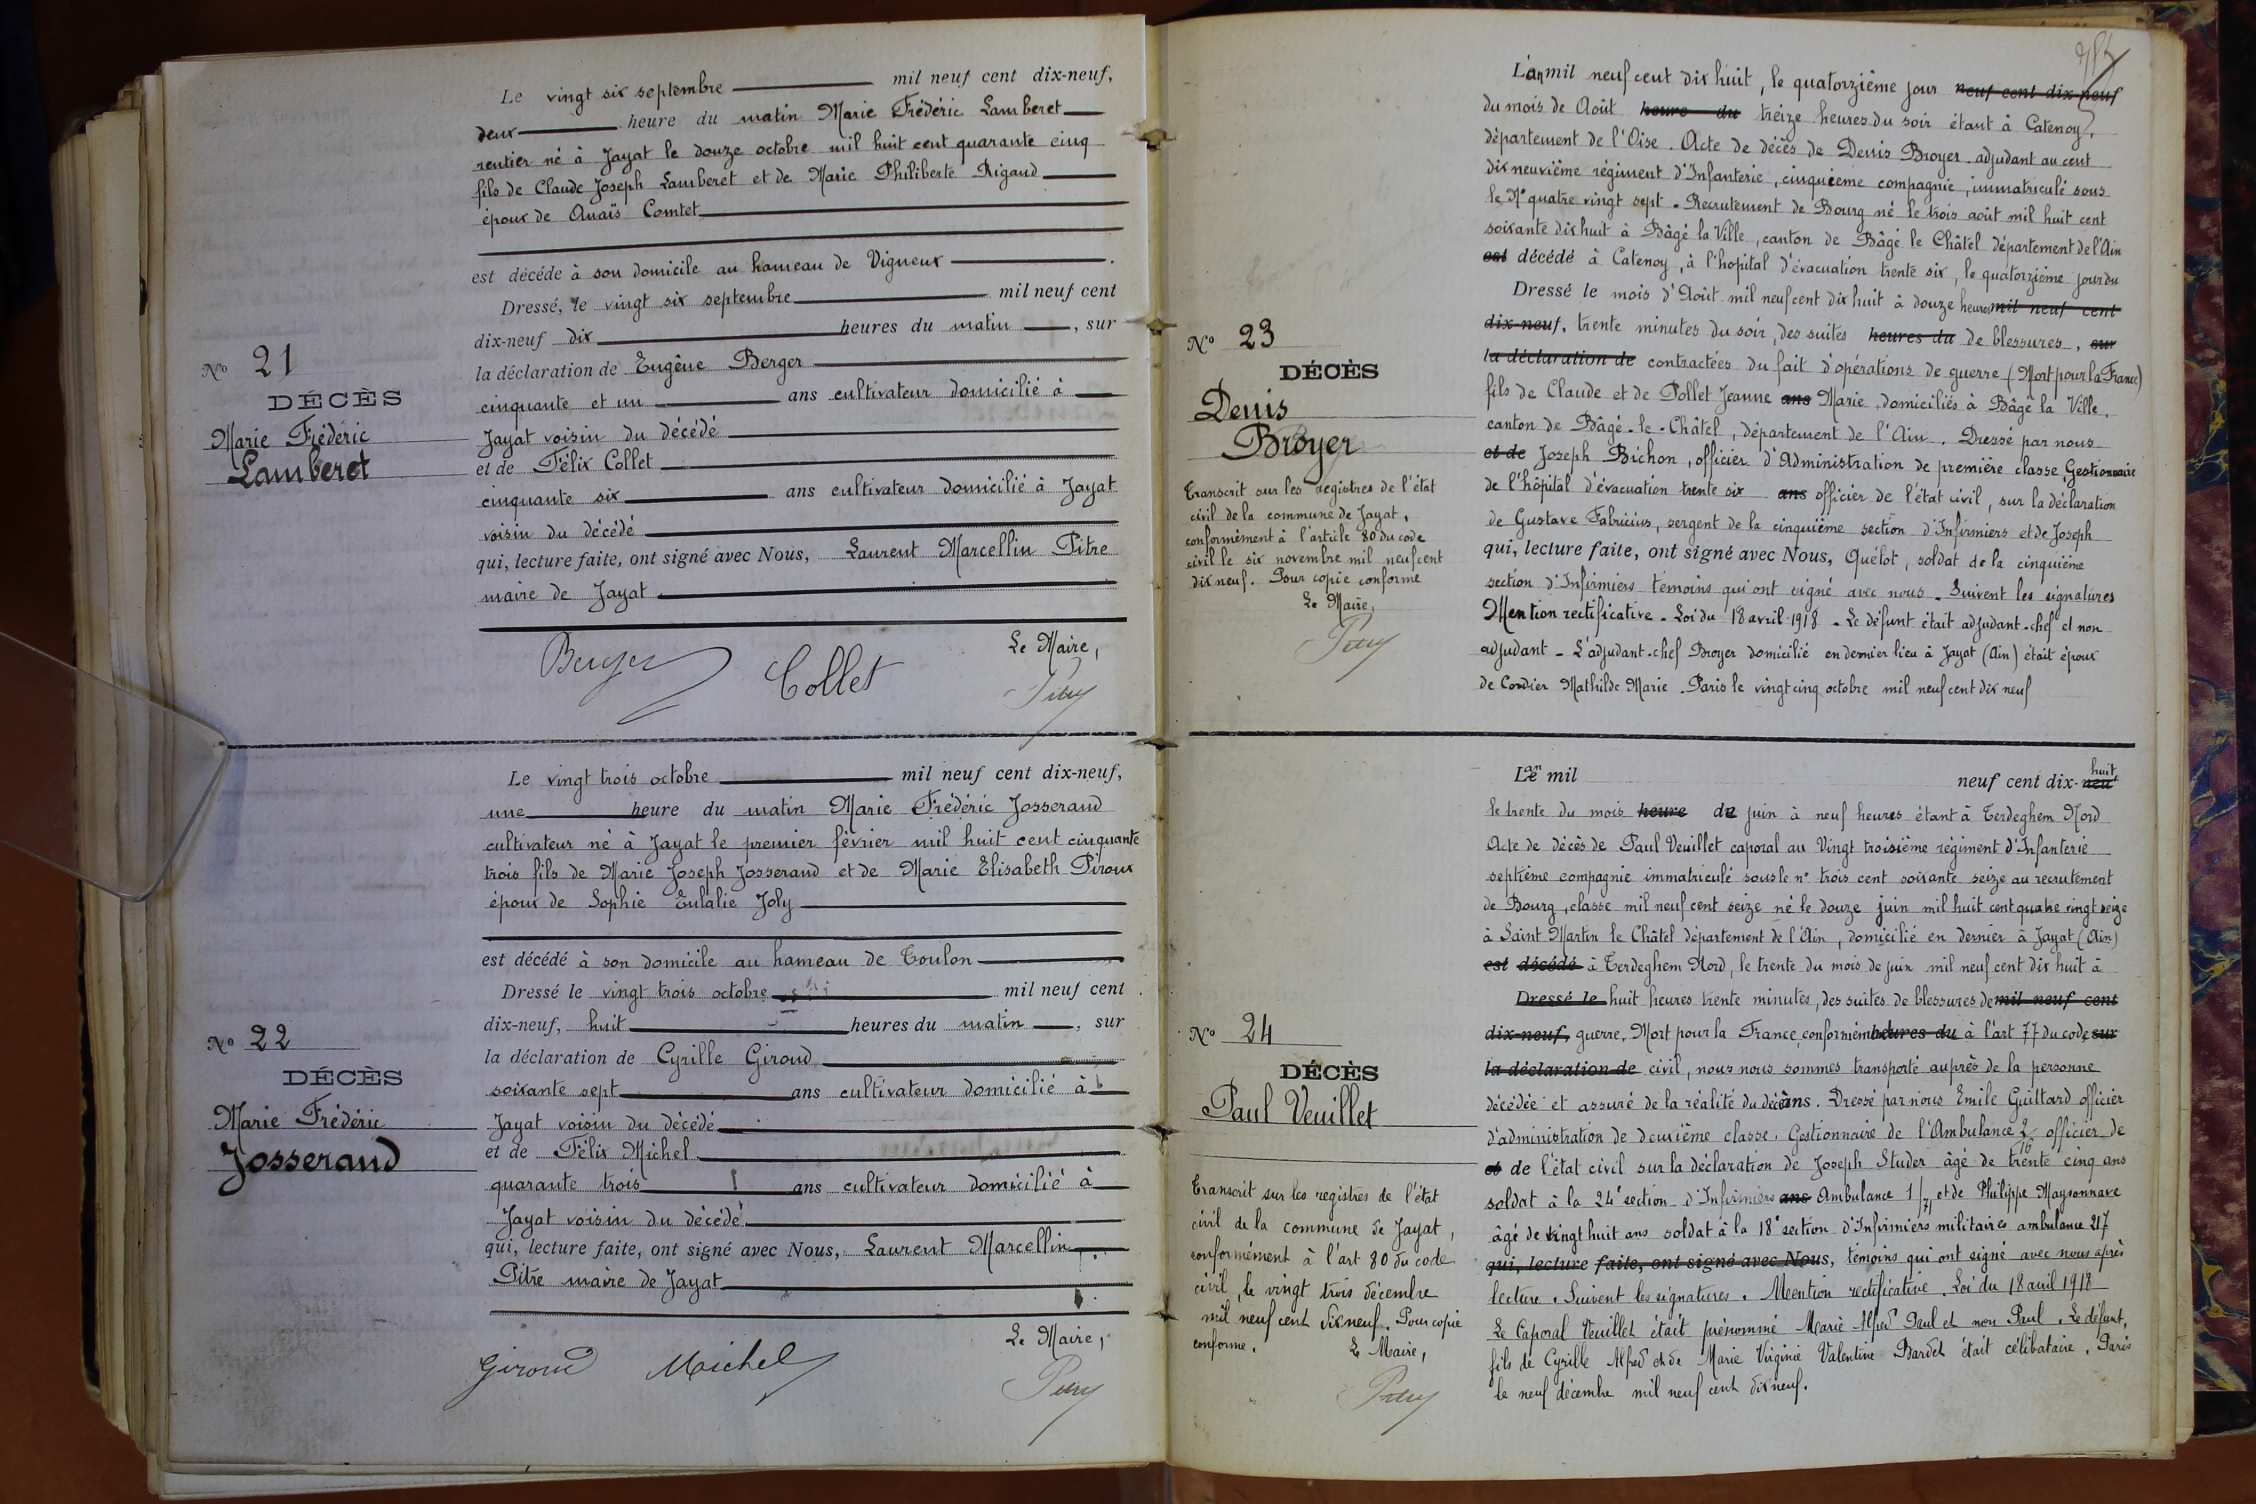 Le vingt six septembre mil neuf cent dix-neuf,
deux heure du matin Marie Frédéric Lamberet
rentier né à Jayat le douze octobre mil huit cent quarante cinq
fils de Claude Joseph Lamberet et de Marie Philiberte Rigaud
époux de Anaïs Comtet
est décédé à son domicile au hameau de Vigneux.
Dressé, le vingt six septembre mil neuf cent
dix-neuf dix heures du matin, sur
la déclaration de Eugène Berger
cinquante et un ans cultivateur domicilié à
Jayat voisin du décédé
et de Félix Collet
cinquante six ans cultivateur domicilié à Jayat
voisin du décédé
qui, lecture faite, ont signé avec Nous, Laurent Marcellin Pitre
maire de Jayat
Le Maire,
Berger Collet Pitre
No 21
DÉCÈS
Marie Frédéric
Lamberet
Le vingt trois octobre mil neuf cent dix-neuf,
une heure du matin Marie Frédéric Josserand
cultivateur né à Jayat le premier février mil huit cent cinquante
trois fils de Marie Joseph Josserand et de Marie Elisabeth Piroux
époux de Sophie Eulalie Joly
est décédé à son domicile au hameau de Toulon
Dressé le vingt trois octobre mil neuf cent
dix-neuf, huit heures du matin, sur
la déclaration de Cyrille Giroud
soixante sept ans cultivateur domicilié à
Jayat voisin du décédé
et de Félix Michel
quarante trois ans cultivateur domicilié à
Jayat voisin du décédé
qui, lecture faite, ont signé avec Nous, Laurent Marcellin
Pitre maire de Jayat
Le Maire,
Giroud Michel Pitre
No 22
DÉCÈS
Marie Frédéric
Josserand
L'an mil neuf cent dix huit, le quatorzième jour neuf cent dix-neuf
du mois de Août heure du treize heures du soir étant à Catenoy,
département de l'Oise. Acte de décès de Denis Broyer adjudant au cent
dix neuvième régiment d'Infanterie, cinquième compagnie, immatriculé sous
le No quatre vingt sept. Recrutement de Bourg né le trois août mil huit cent
soixante dix huit à Bâgé la Ville, canton de Bâgé le Châtel département de l'Ain
est décédé à Catenoy, à l'hopital d'évacuation trente six, le quatorzième jour du
Dressé le mois d'Août mil neuf cent dix huit à douze heures mil neuf cent
dix-neuf, trente minutes du soir, des suites heures du de blessures, sur
la déclaration de contractées du fait d'opérations de guerre (Mort pour la France)
fils de Claude et de Pollet Jeanne ans Marie domiciliés à Bâgé la Ville.
canton de Bâgé-le-Châtel, département de l'Ain. Dressé par nous
et de Joseph Bichon, officier d'Administration de première classe, Gestionnaire
de l'hôpital d'évacuation trente six ans officier de l'état civil, sur la déclaration
de Gustave Fabricius, sergent de la cinquième section d'Infirmiers et de Joseph
qui, lecture faite, ont signé avec Nous, Quélot, soldat de la cinquième
section d'Infirmiers témoins qui ont signé avec nous. Suivent les signatures
Mention rectificative. Loi du 18 avril 1918. Le défunt était adjudant-chef et non
adjudant. L'adjudant-chef Broyer domicilié en dernier lieu à Jayat (Ain) était époux
de Cordier Mathilde Marie. Paris le vingt cinq octobre mil neuf cent dix neuf
No 23
DÉCÈS
Denis
Broyer
Transcrit sur les registres de l'état
civil de la commune de Jayat,
conformément à l'article 80 du code
civil le six novembre mil neuf cent
dix neuf. Pour copie conforme
Le Maire,
Pitre
L'an mil neuf cent dix-neuf huit
le trente du mois heure de juin à neuf heures étant à Terdeghem Nord
Acte de décès de Paul Veuillet caporal au Vingt troisième régiment d'Infanterie
septième compagnie immatriculé sous le no trois cent soixante seize au recrutement
de Bourg, classe mil neuf cent seize né le douze juin mil huit cent quatre vingt seize
à Saint Martin le Châtel département de l'Ain, domicilié en dernier à Jayat (Ain)
est décédé à Terdeghem Nord, le trente du mois de juin mil neuf cent dix huit à
Dressé le huit heures trente minutes, des suites de blessures de mil neuf cent
dix-neuf, guerre. Mort pour la France, conformém heures du à l'art 77 du code sur
la déclaration de civil, nous nous sommes transporté auprès de la personne
décédée et assuré de la réalité du décès ans. Dressé par nous Emile Guittard officier
d'administration de deuxième classe. Gestionnaire de l'Ambulance 2/16 officier de
et de l'état civil sur la déclaration de Joseph Studer âgé de trente cinq ans
soldat à la 24e section d'Infirmiers ans Ambulance 1/71 et de Philippe Maysonnave
âgé de vingt huit ans soldat à la 18e section d'Infirmiers militaires ambulance 217
qui, lecture faite, ont signé avec Nous, témoins qui ont signé avec nous après
lecture. Suivent les signatures. Mention rectificative. Loi du 18 avril 1918
Le Caporal Veuillet était prénommé Marie Alfred Paul et non Paul. Le défunt,
fils de Cyrille Alfred et de Marie Virginie Valentine Bardet était célibataire. Paris
le neuf décembre mil neuf cent dix neuf.
No 24
DÉCÈS
Paul Veuillet
Transcrit sur les registres de l'état
civil de la commune de Jayat,
conformément à l'art 80 du code
civil, le vingt trois décembre
mil neuf cent dix neuf. Pour copie
conforme. Le Maire,
Pitre